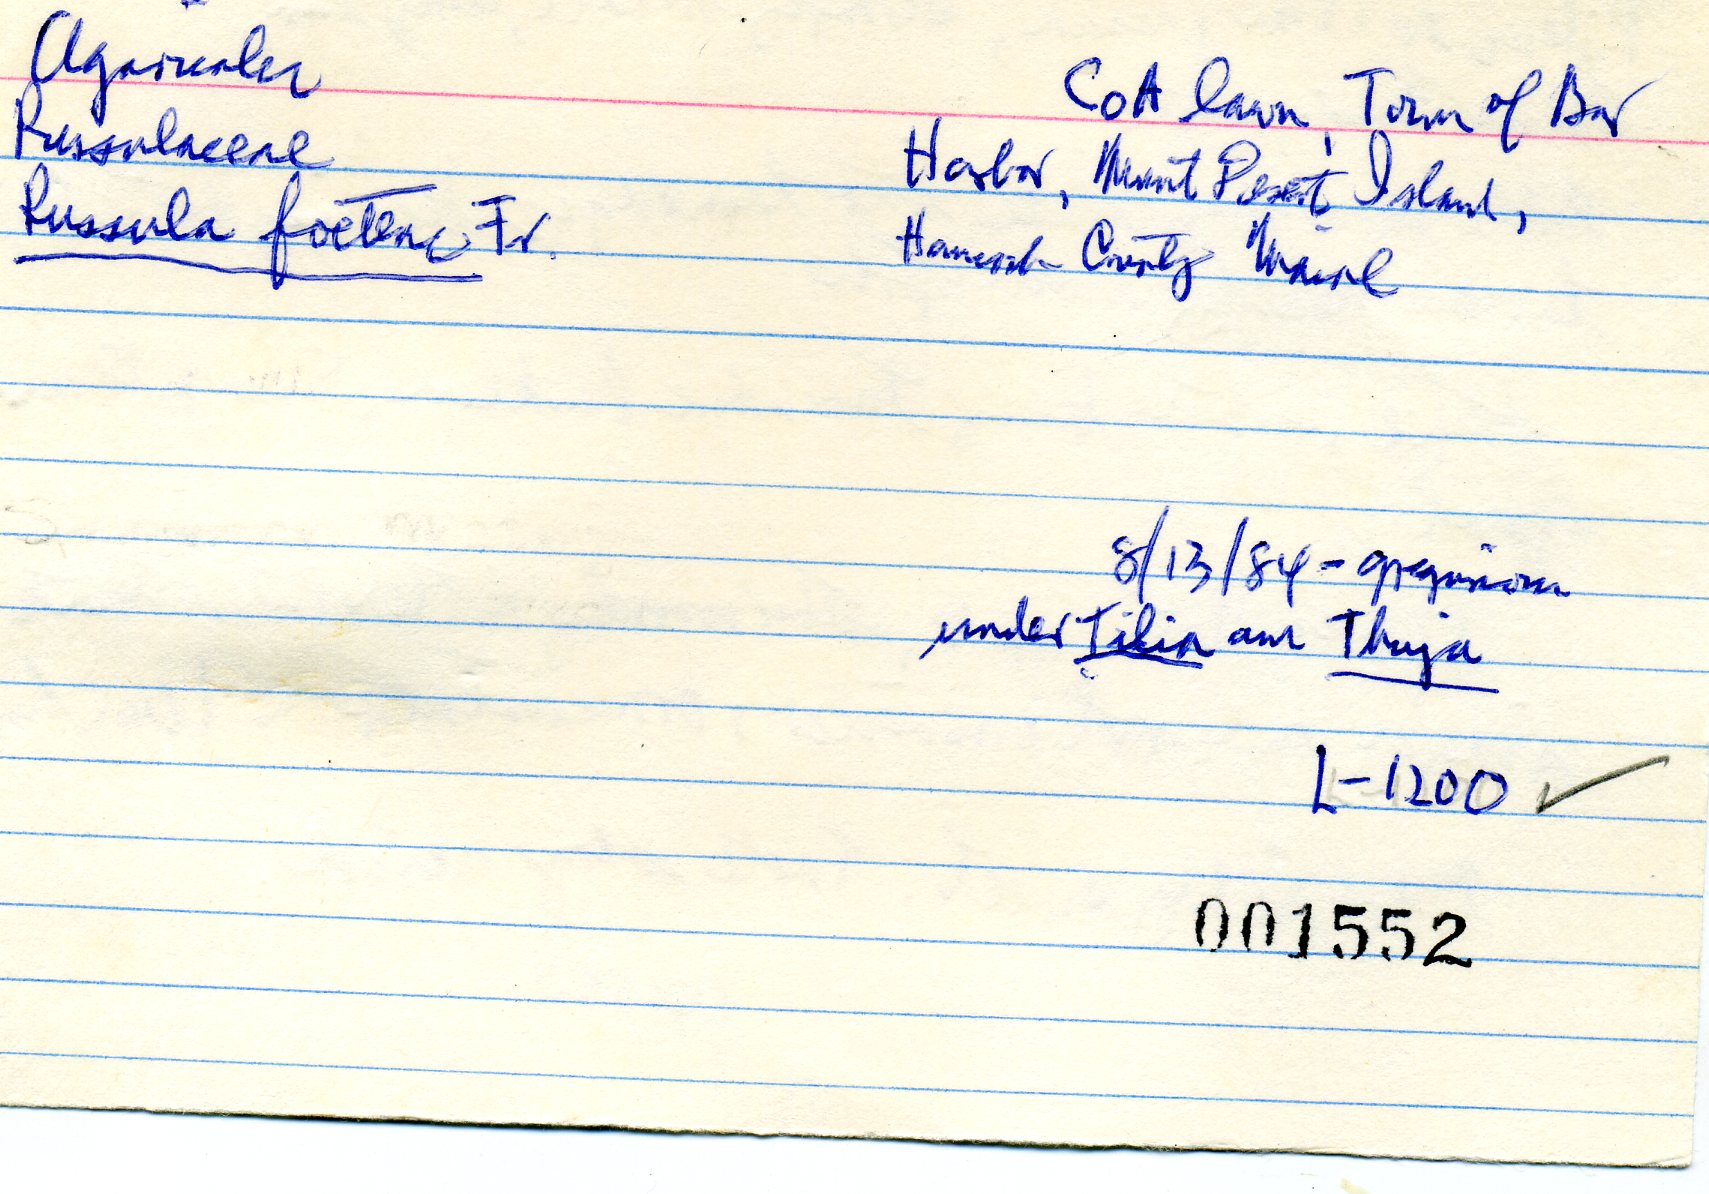 Agaricales
Russulaceae
Russula foetens Fr.
COA lawn, Town of Bar
Harbor, Mount Desert Island,
Hancock County Maine
8/13/84 - gregarious
under Tilia and Thuja
L-1200 ✓
001552